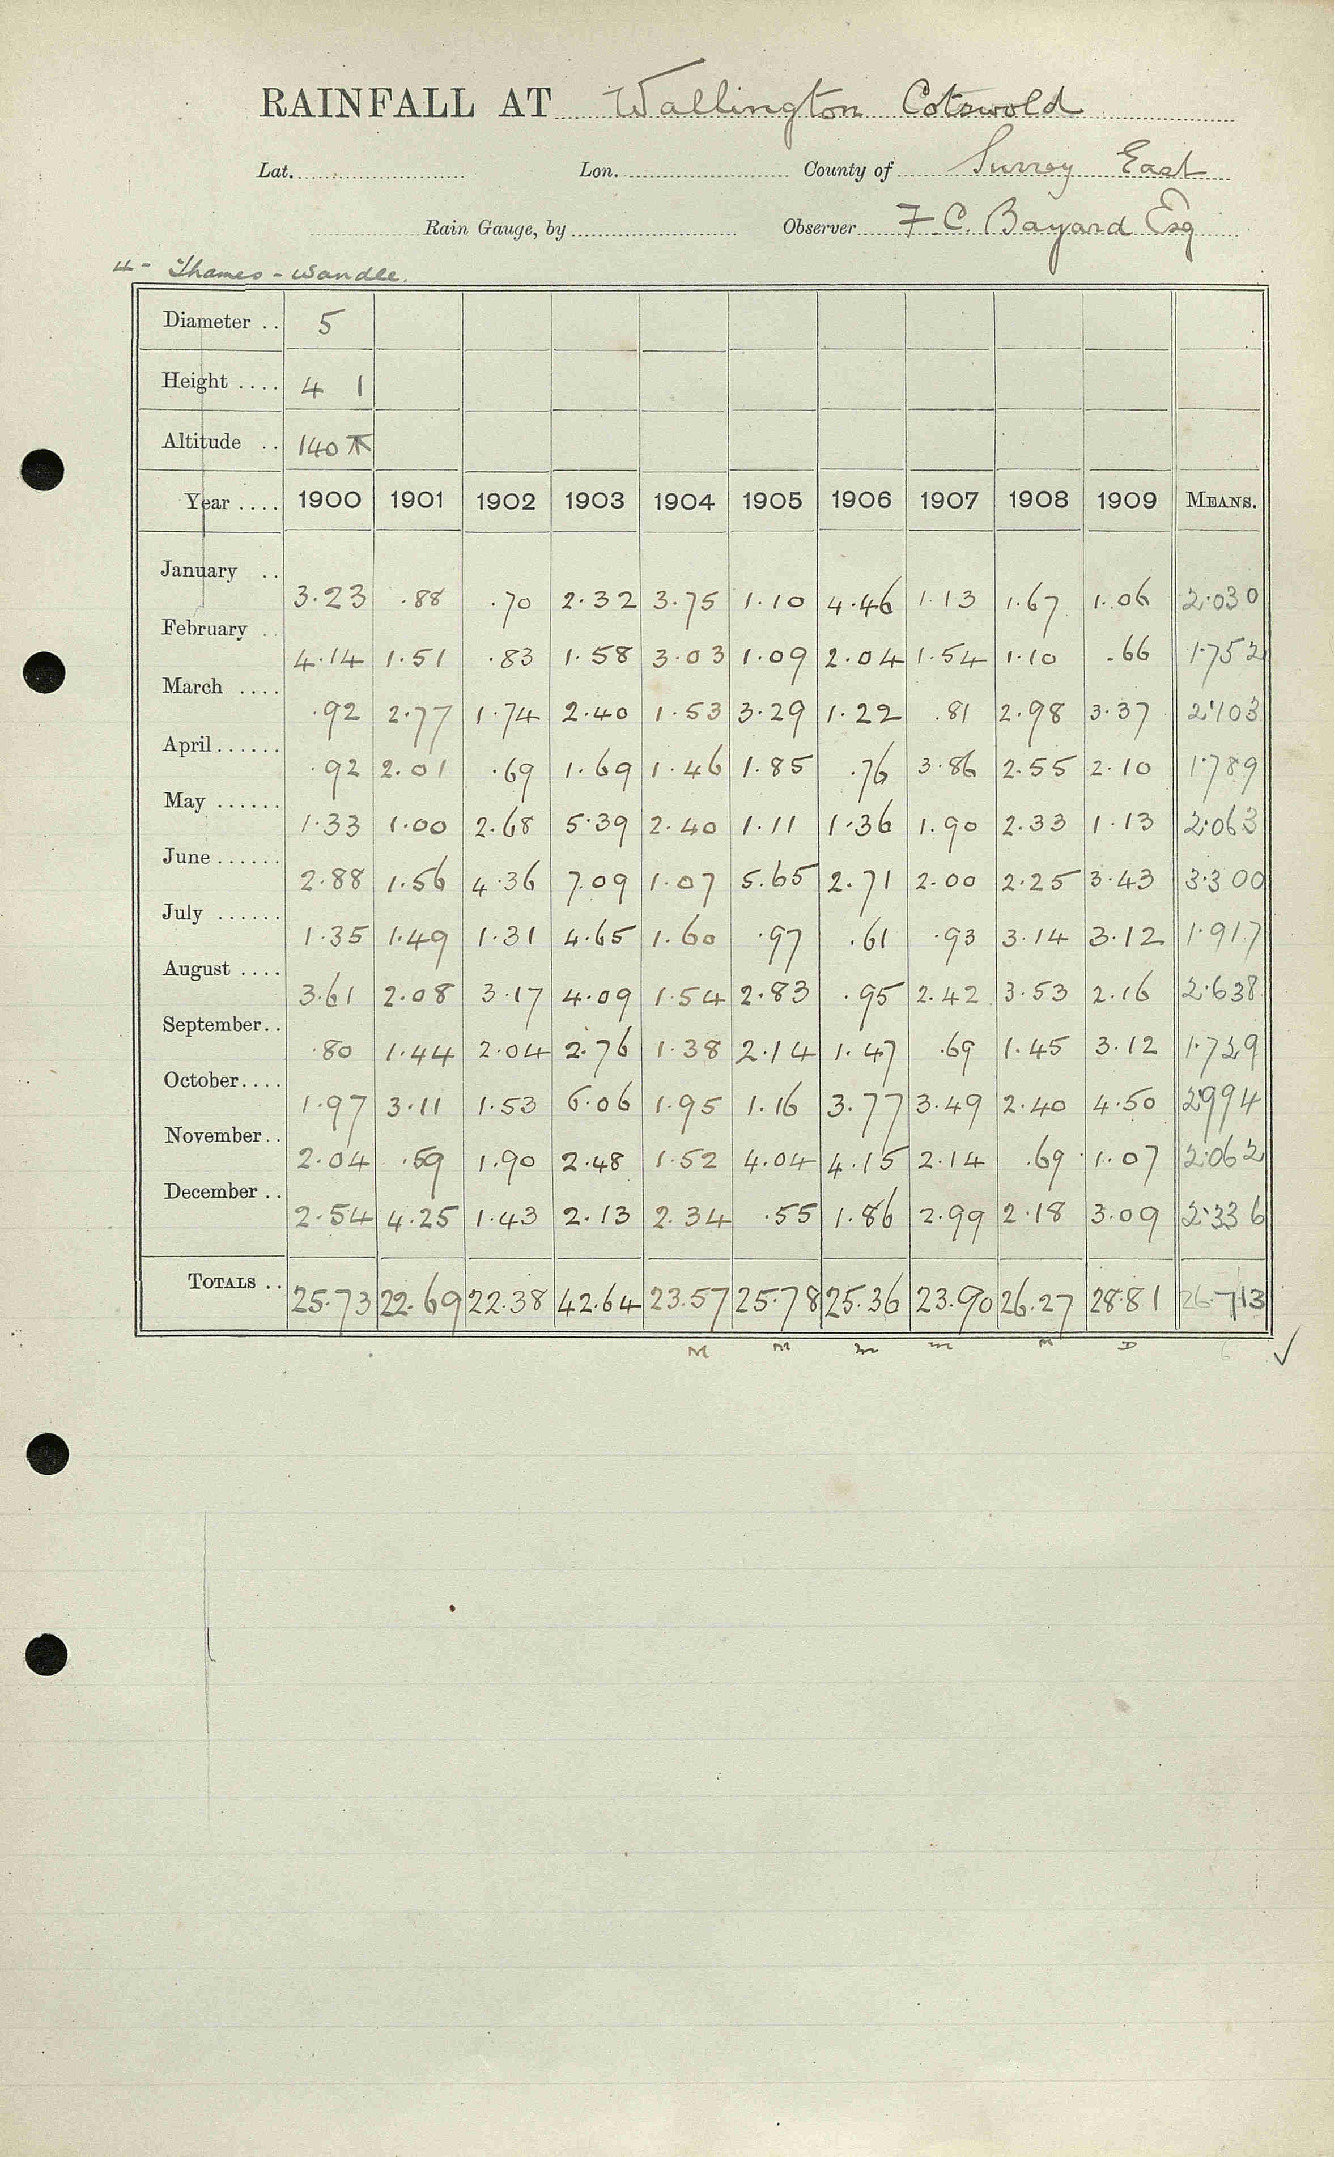 RAINFALL AT Wallington Cotswold
Lat. Lon. County of Surrey East
Rain Gauge, by Observer F. C. Bayard Esq
4 - Thames - Wandle.
Diameter .. 5
Height .... 4 1
Altitude .. 140
Year .... 1900 1901 1902 1903 1904 1905 1906 1907 1908 1909 MEANS.
January .. 3.23 .88 .70 2.32 3.75 1.10 4.46 1.13 1.67 1.06 2.030
February .. 4.14 1.51 .83 1.58 3.03 1.09 2.04 1.54 1.10 .66 1.752
March .... .92 2.77 1.74 2.40 1.53 3.29 1.22 .81 2.98 3.37 2.103
April ...... .92 2.01 .69 1.69 1.46 1.85 .76 3.86 2.55 2.10 1.789
May ...... 1.33 1.00 2.68 5.39 2.40 1.11 1.36 1.90 2.33 1.13 2.063
June ...... 2.88 1.56 4.36 7.09 1.07 5.65 2.71 2.00 2.25 3.43 3.300
July ...... 1.35 1.49 1.31 4.65 1.60 .97 .61 .93 3.14 3.12 1.917
August .... 3.61 2.08 3.17 4.09 1.54 2.83 .95 2.42 3.53 2.16 2.638
September .. .80 1.44 2.04 2.76 1.38 2.14 1.47 .69 1.45 3.12 1.729
October .... 1.97 3.11 1.53 6.06 1.95 1.16 3.77 3.49 2.40 4.50 2.994
November .. 2.04 .59 1.90 2.48 1.52 4.04 4.15 2.14 .69 1.07 2.062
December .. 2.54 4.25 1.43 2.13 2.34 .55 1.86 2.99 2.18 3.09 2.336
TOTALS .. 25.73 22.69 22.38 42.64 23.57 25.78 25.36 23.90 26.27 28.81 26.713
M M m m M D